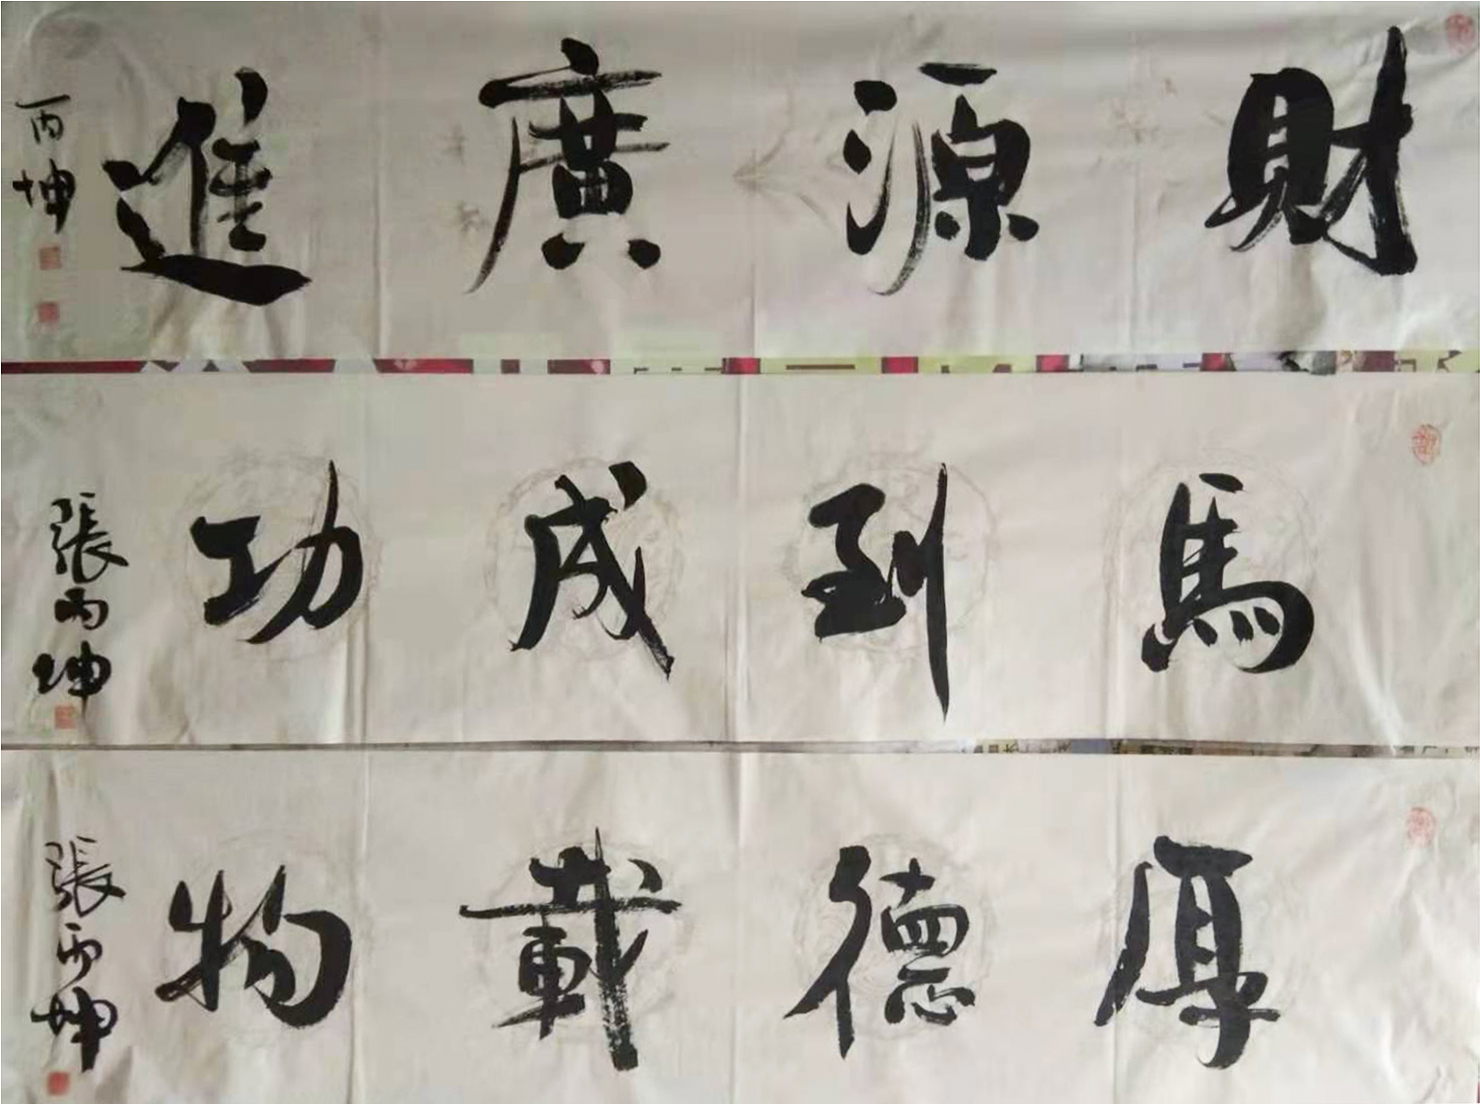 財源廣進
丙坤
馬到成功
張丙坤
厚德載物
張丙坤